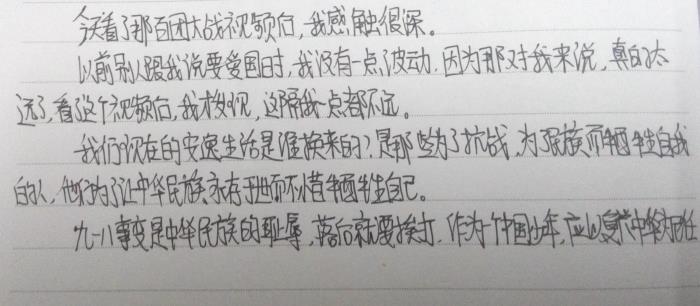 今天看了那百团大战视频后,我感触很深。
以前别人跟我说要爱国时,我没有一点波动.因为那对我来说,真的太
远了,看了这个视频后,我才发现,这离我一点都不远。
我们现在的安逸生活是谁换来的?是那些为了抗战,为了民族而牺牲自我
的人,他们为了让中华民族永存于世而不惜牺牲自己。
九一八事变是中华民族的耻辱,落后就要挨打.作为一个中国少年,应以中华为己任